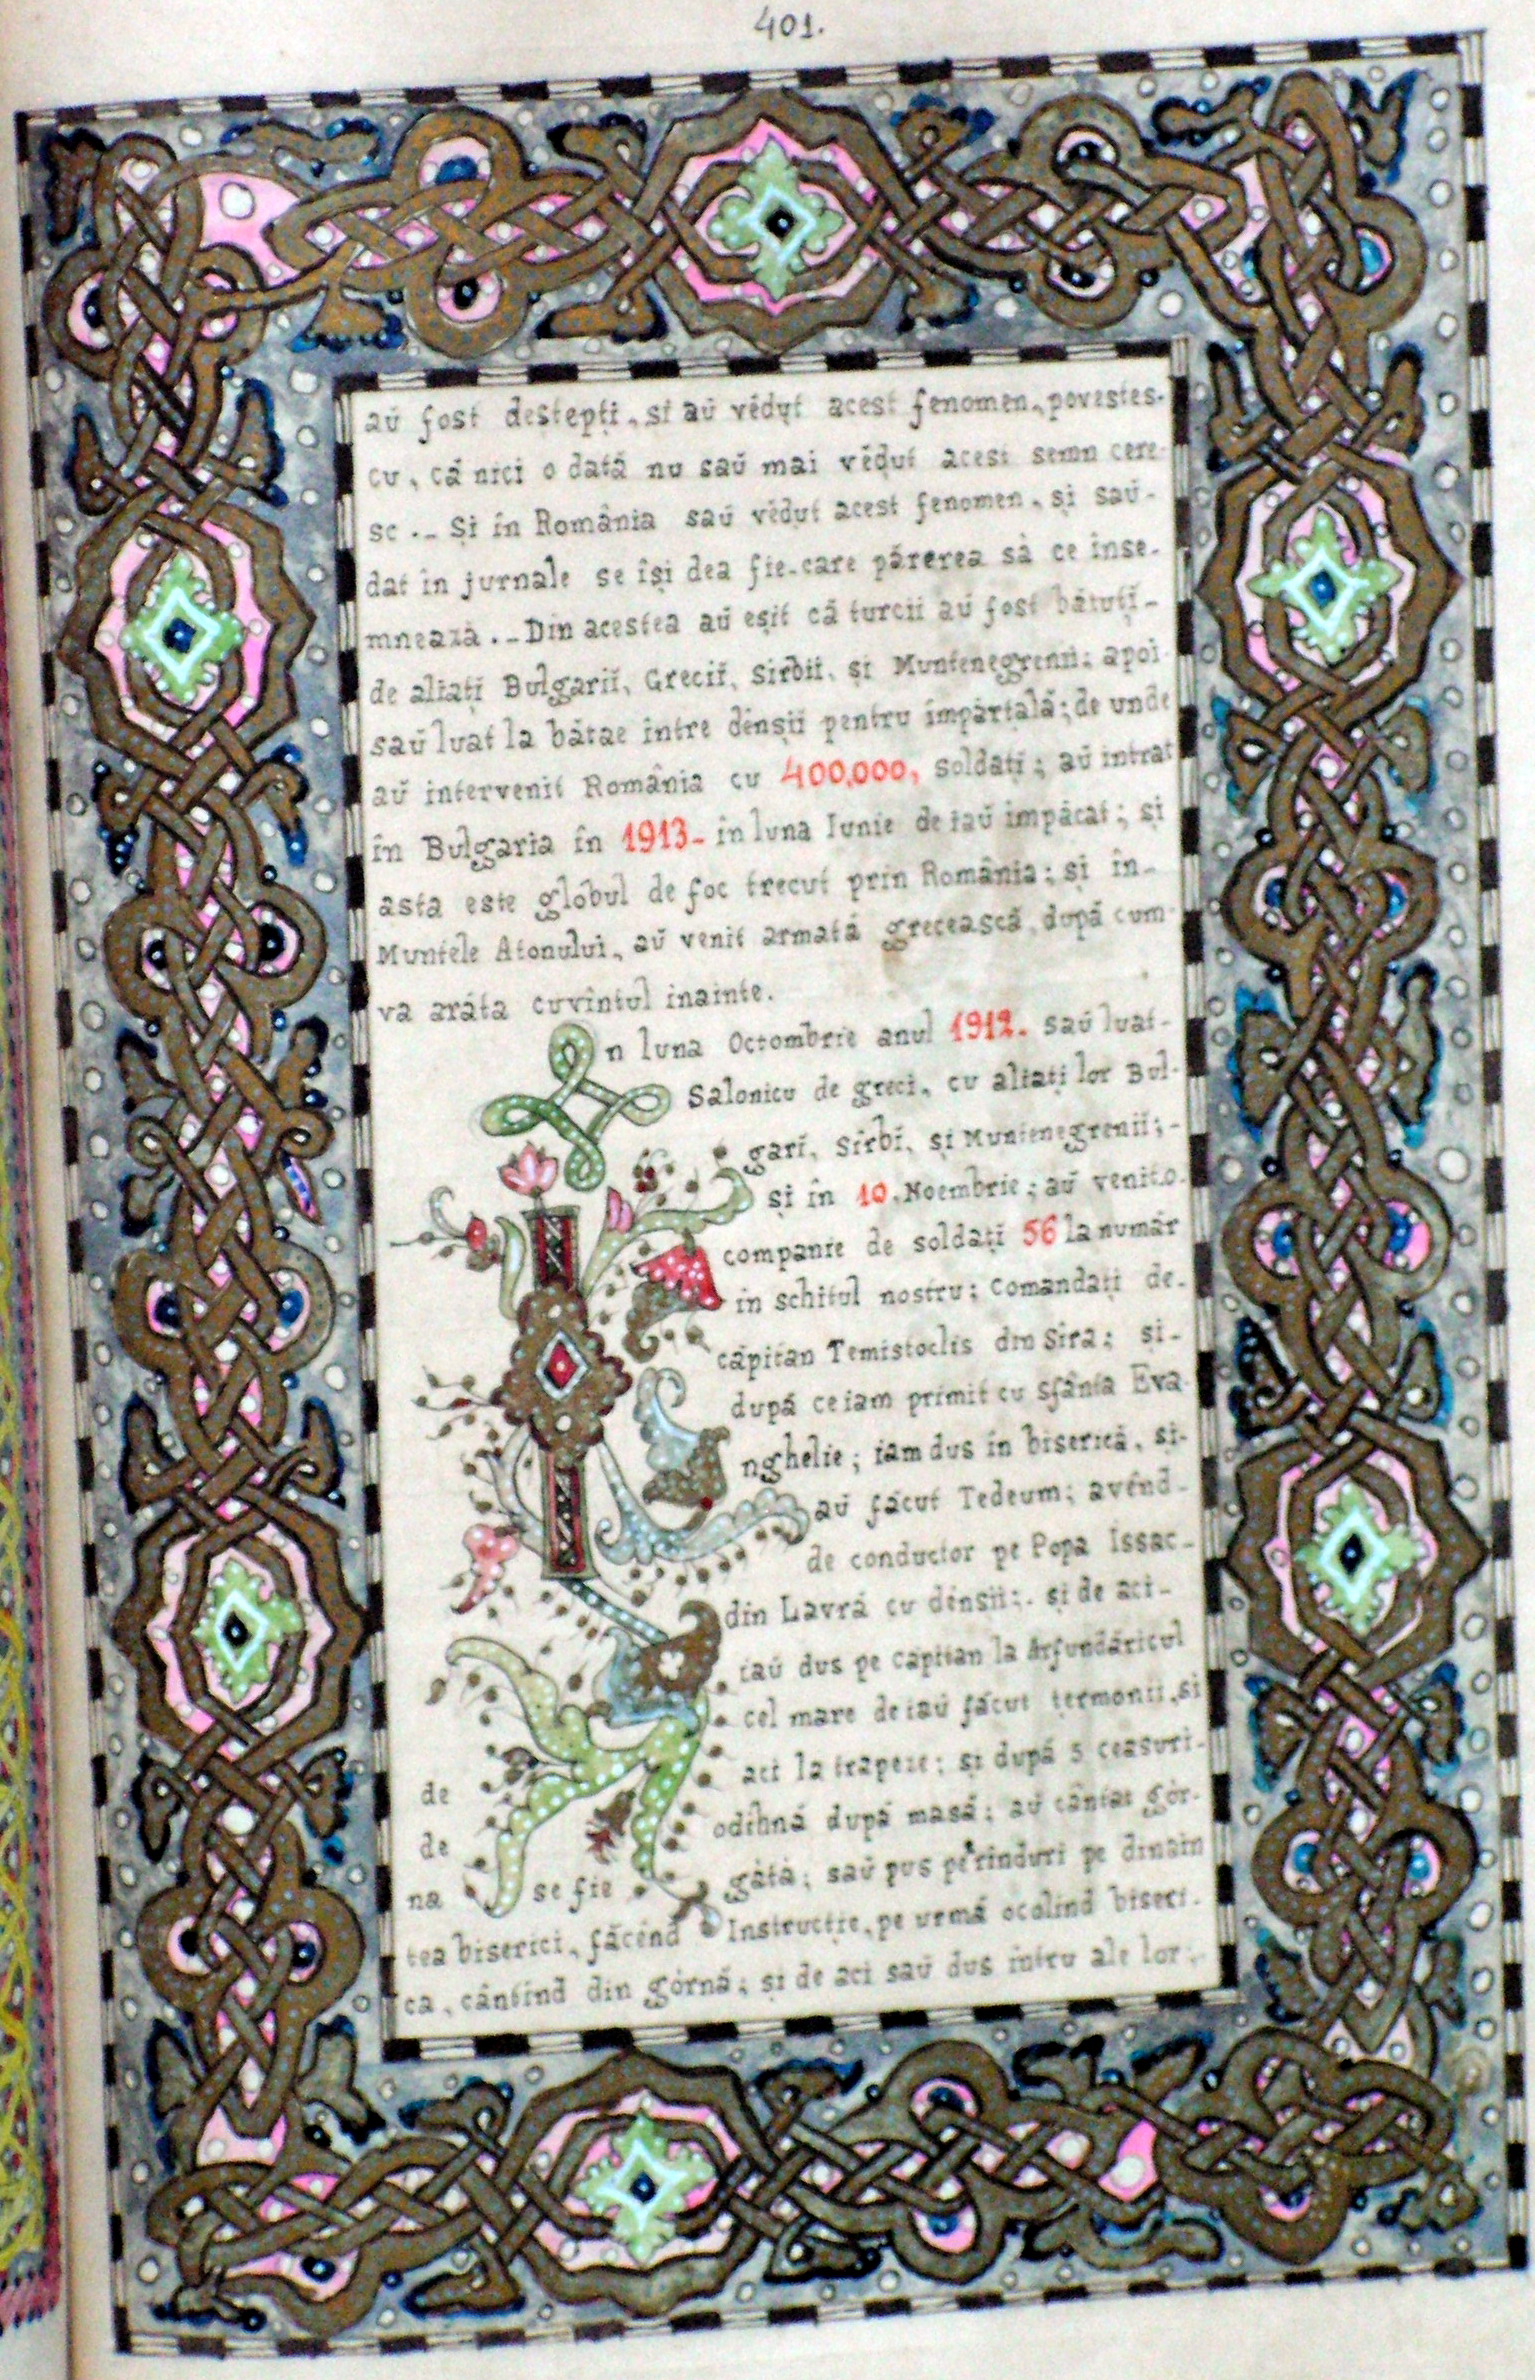 401.
aŭ fost destepți, si aŭ vĕdut acest fenomen, povestes-
cu, că nici o dată nu saŭ mai vĕdut acest semn cere-
sc.- Și în România saŭ vĕdut acest fenomen, și saŭ-
dat în jurnale se își dea fie-care părerea să ce înse-
mneaza.- Din acestea aŭ eșit că turcii aŭ fost bătuți-
de aliați Bulgariĭ, Greciĭ, Sirbiĭ, și Muntenegrenii; apoi
saŭ luat la bătae intre dênșii pentru împărțală; de unde
aŭ intervenit România cu 400,000, soldați; aŭ intrat
în Bulgaria în 1913- in luna Iunie de iaŭ impăcat; și
asta este glóbul de foc trecut prin România; și în-
Muntele Atonului, aŭ venit armată grecească, după cum
va aráta cuvîntul inainte.
În luna Octombrie anul 1912. saŭ luat-
Salonicu de greci, cu aliați lor Bul-
gari, Sîrbĭ, și Muntenegreniĭ;-
și în 10, Noembrie; aŭ venit o
companie de soldați 56 la numàr
in schitul nostru; Comandați de-
căpitan Temistoclis din Sira; si-
după ce iam primit cu sfânta Eva-
nghelie; iam dus în biserică, si-
aŭ făcut Tedeum; avênd-
de conductor pe Popa Issac-
din Lavră cu dênsii;. și de aci-
iaŭ dus pe capitan la Arfundáricul
cel mare de iaŭ făcut țermonii, si
de aci la trapeze; și după 5 ceasuri-
de odihnă după masă; aŭ cântat gór-
na se fie gáta; saŭ pus pe rinduri pe dinain
tea biserici, făcênd Instrucție, pe urmă ocolind biseri-
ca, cântind din górnă; și de aci saŭ dus intru ale lor;-